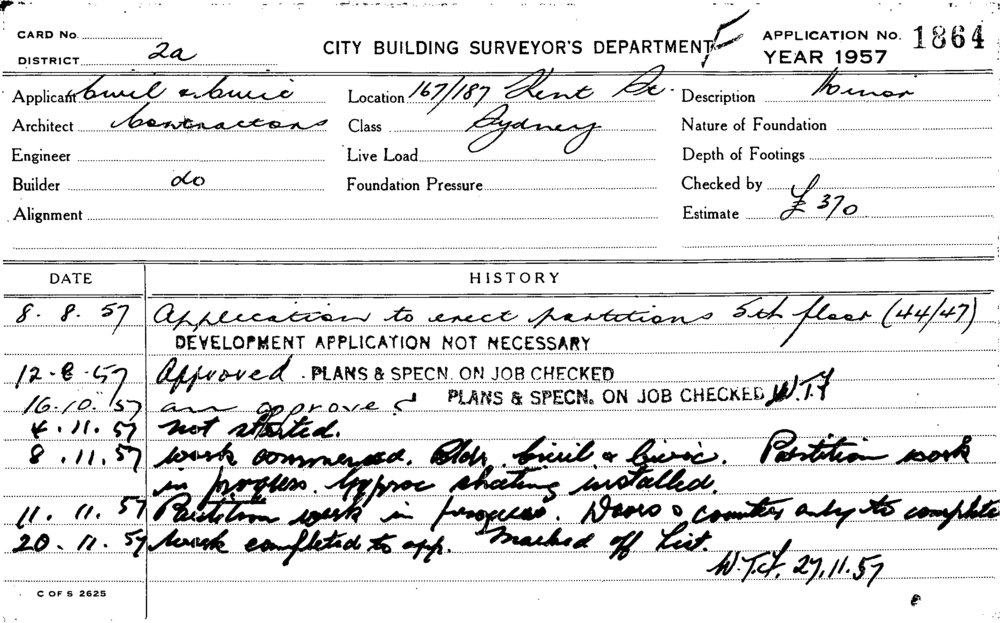 CARD No.
DISTRICT 2a
CITY BUILDING SURVEYOR'S DEPARTMENT
APPLICATION No. 1864
YEAR 1957
Applicant Civil & Civic Location 167/187 Kent St. Description Minor
Architect Contractors Class Sydney Nature of Foundation
Engineer Live Load Depth of Footings
Builder do Foundation Pressure Checked by
Alignment Estimate £370
DATE HISTORY
8. 8. 57 Application to erect partitions 5th floor (44/47)
DEVELOPMENT APPLICATION NOT NECESSARY
12-8-57 Approved. PLANS & SPECN. ON JOB CHECKED
16.10.57 approved PLANS & SPECN. ON JOB CHECKED W.T.F
4.11.57 not started.
8.11.57 work commenced. Bldr. Civil & Civic. Partition work
in progress. Approc sheeting installed.
11. 11. 57 Partition work in progress. Doors & counters only to complete
20.11.57 Work completed to app. Marked off List.
W.T.F. 27.11.57
C OF S 2625